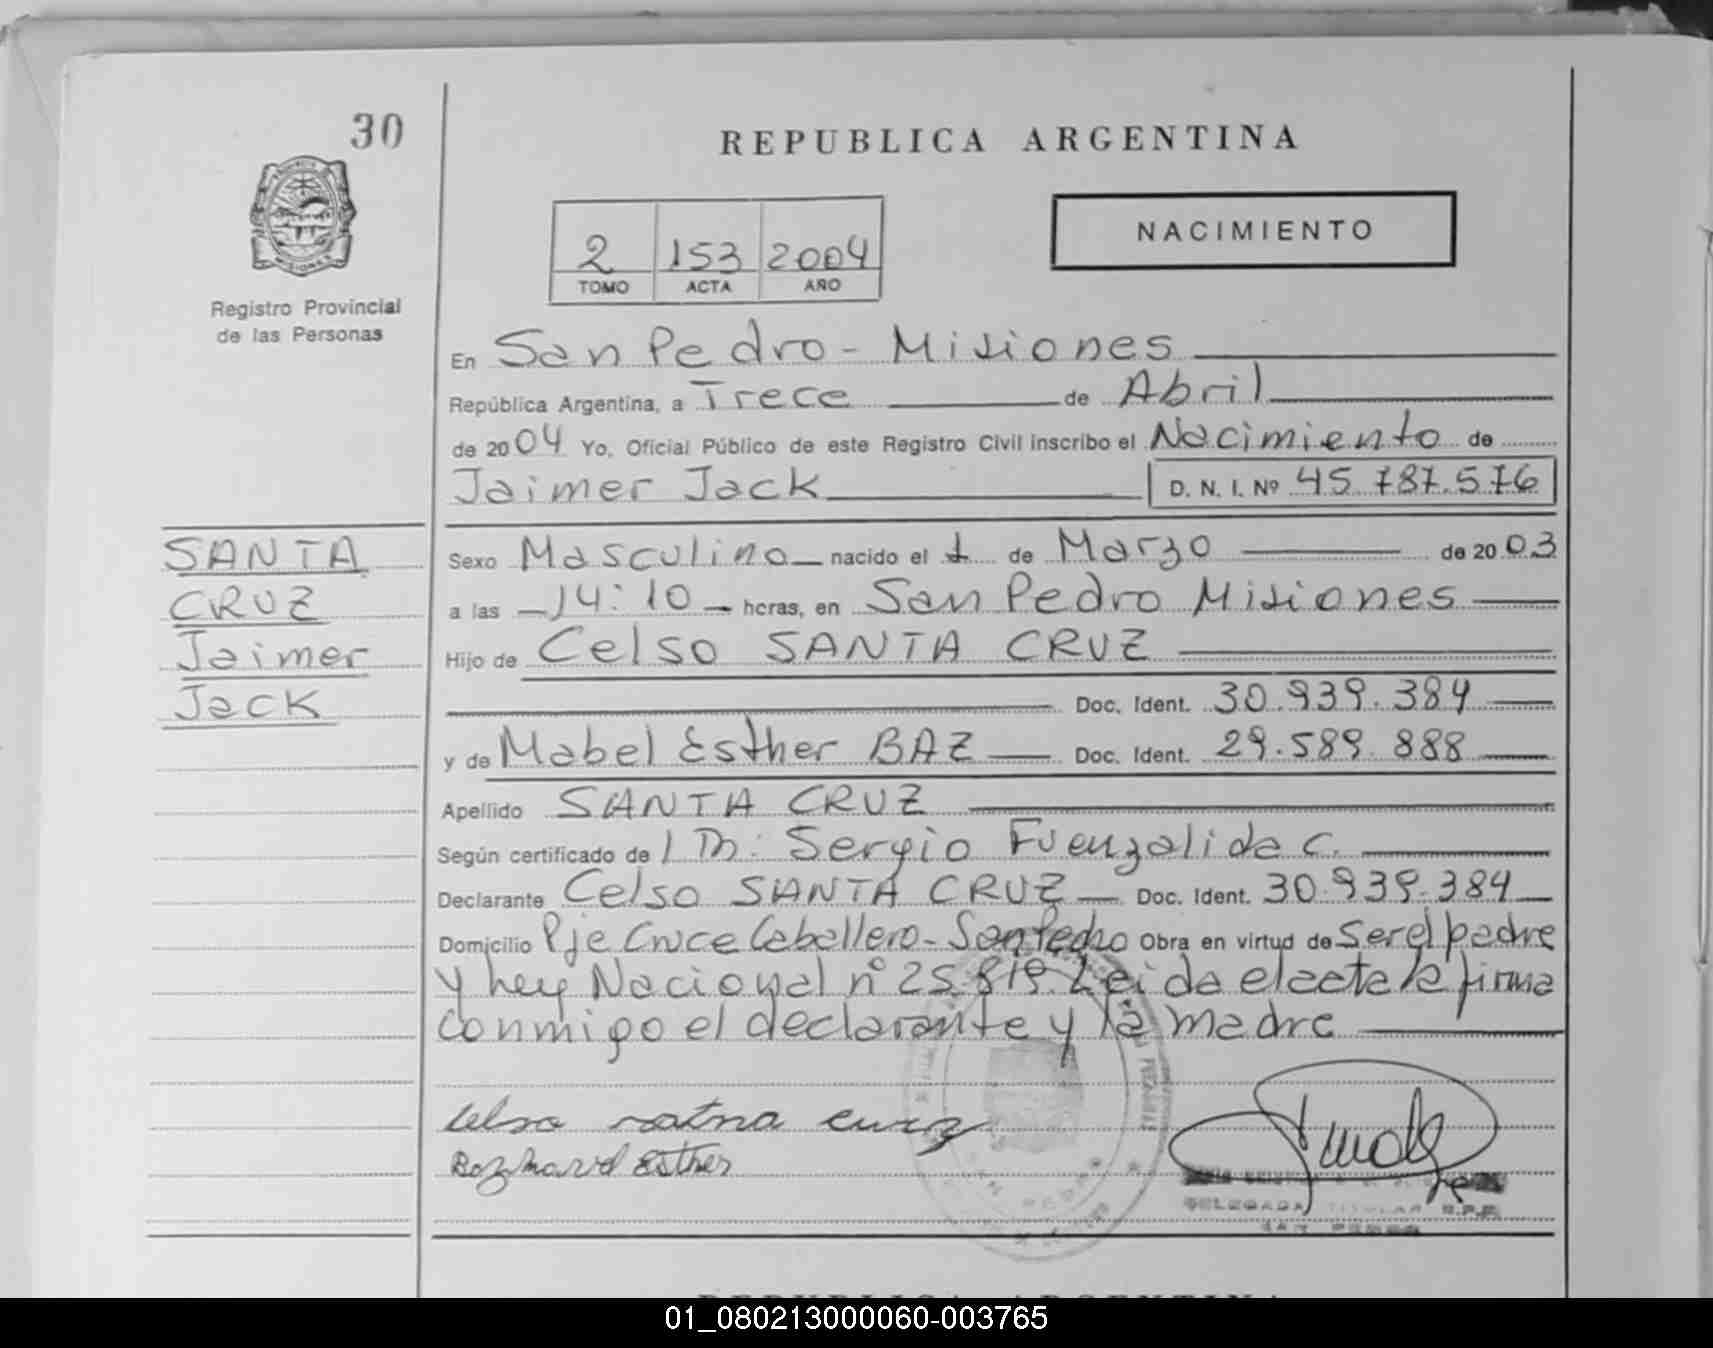 30
REPUBLICA ARGENTINA
2 153 2004
TOMO ACTA AÑO
NACIMIENTO
MISIONES
Registro Provincial
de las Personas
En San Pedro - Misiones
República Argentina, a Trece de Abril
de 2004 Yo, Oficial Público de este Registro Civil inscribo el Nacimiento de
Jaimer Jack D. N. I. Nº 45.787.576
SANTA
CRUZ
Jaimer
Jack
Sexo Masculino nacido el 1 de Marzo de 2003
a las 14:10 horas, en San Pedro Misiones
Hijo de Celso SANTA CRUZ
Doc. Ident. 30.939.384
y de Mabel Esther BAZ Doc. Ident. 29.589.888
Apellido SANTA CRUZ
Según certificado de Sergio Fuenzalida C.
Declarante Celso SANTA CRUZ Doc. Ident. 30.939.384
Domicilio Pje Cruce Caballero - San Pedro Obra en virtud de Ser el padre
y ley Nacional nº 25.819. Leida el acta la firma
conmigo el declarante y la madre
Celso
Esther
DELEGADA TITULAR R.P.P.
SAN PEDRO
REPUBLICA ARGENTINA
01_080213000060-003765